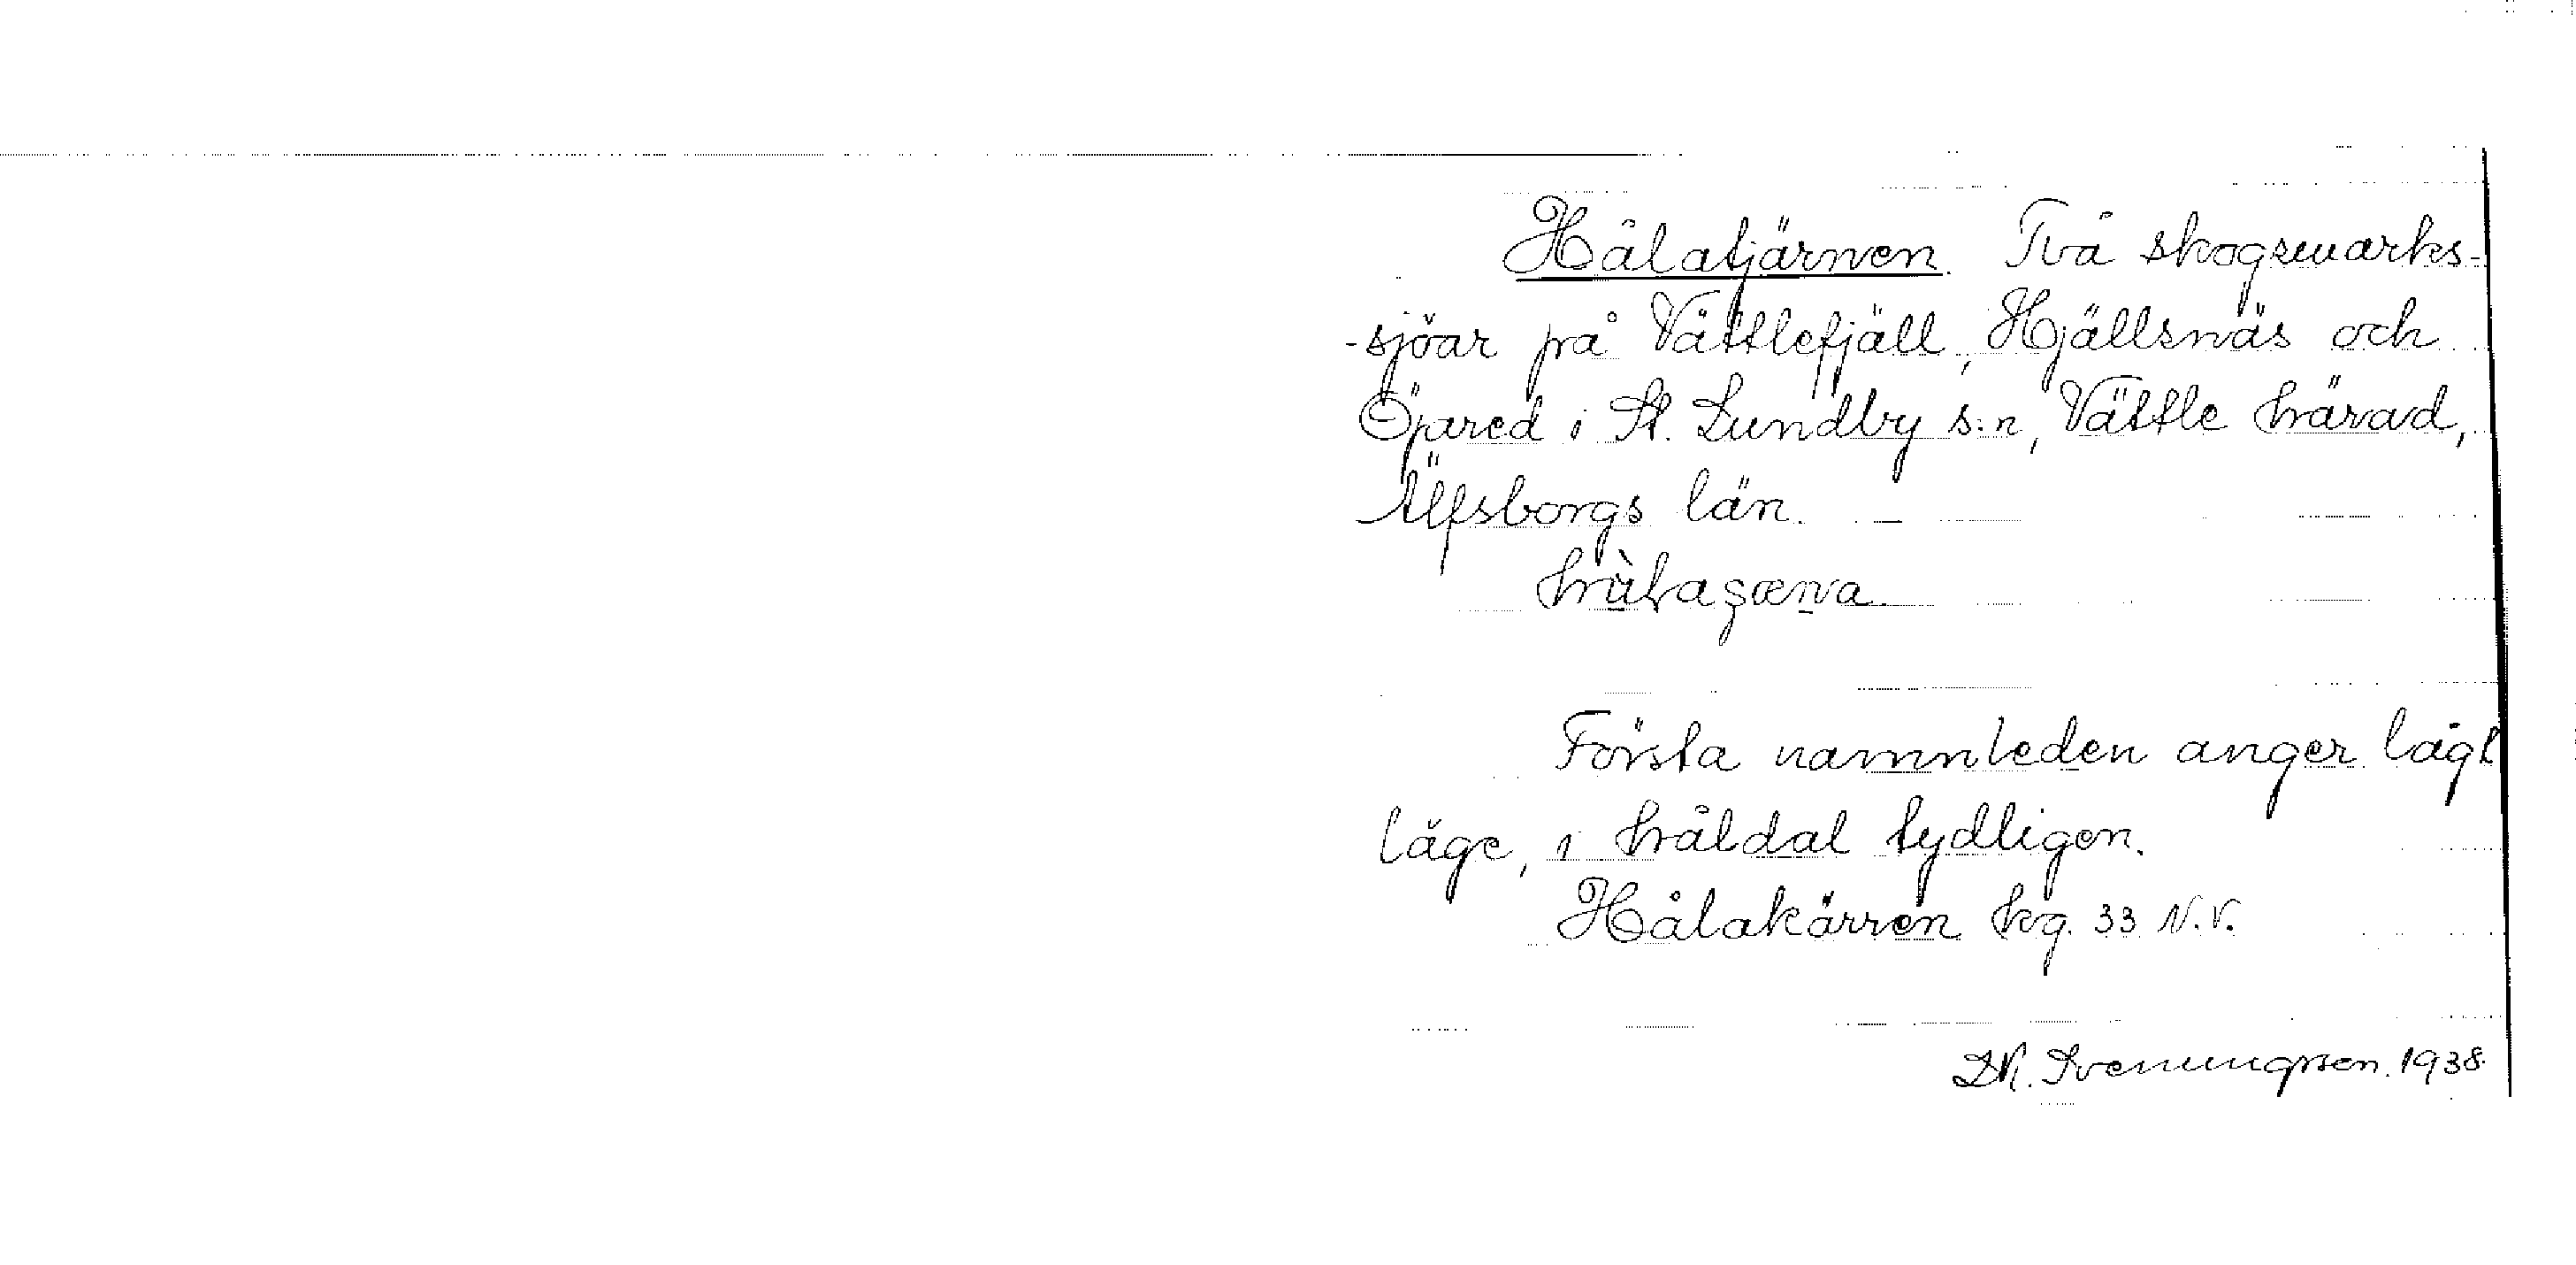 Hålatjärnen. Två skogsmarks-
-sjöar på Vättlefjäll, Hjällsnäs och
Öjared i St. Lundby s:n, Vättle härad,
Älfsborgs län.
Första namnleden anger lågt
läge, i håldal tydligen.
Hålakärren hg. 33 N.V.
D.K. Svenungsson. 1938.